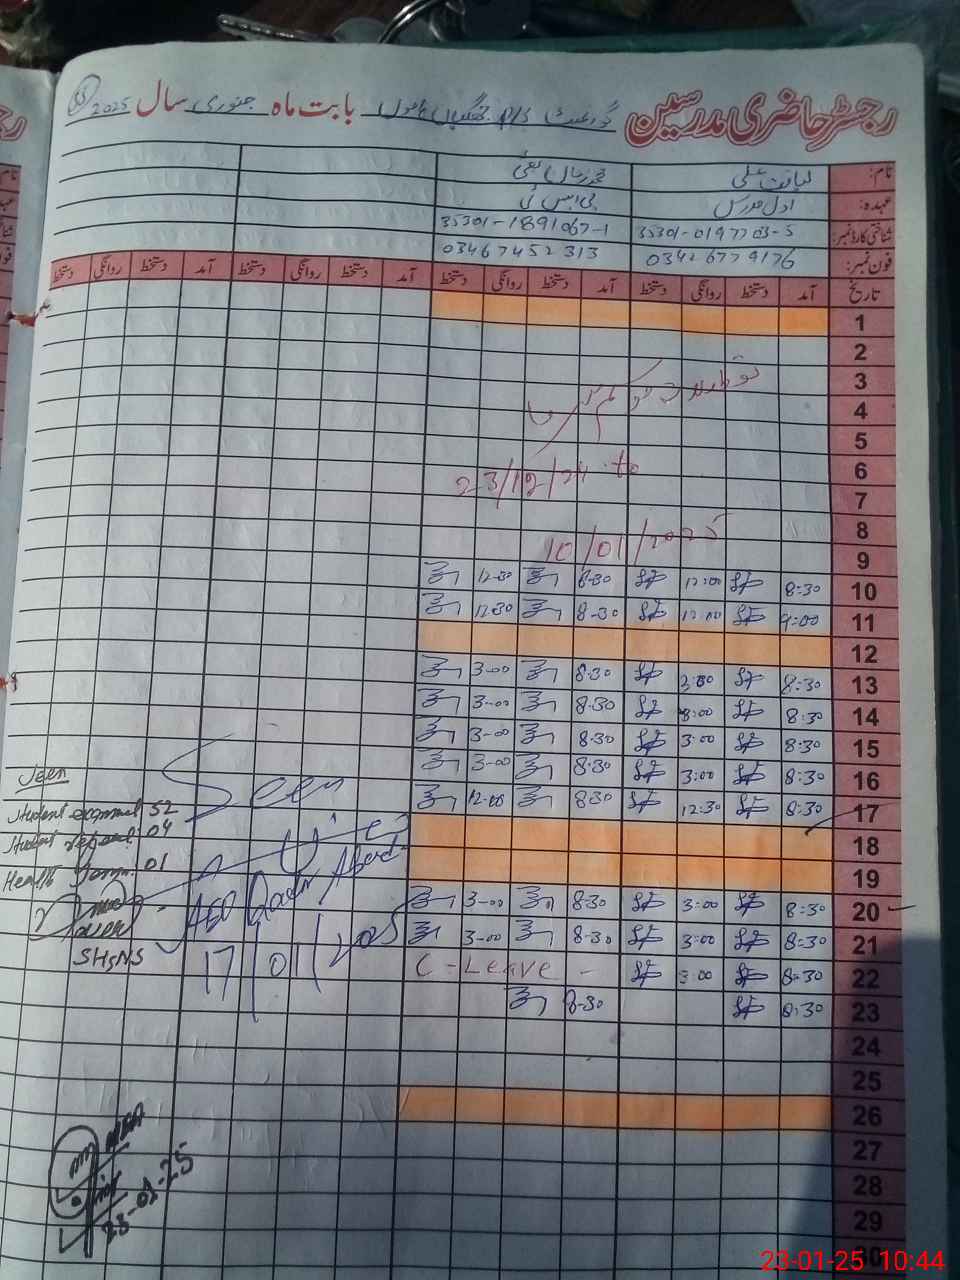 رجسٹر حاضری مدرسین گورنمنٹ P/S جھگیاں بابت ماہ جنوری سال 2025
55
نام: لیاقت علی
عہدہ: اول مدرس پی ایس ٹی
شناختی کارڈ نمبر: 35301-0197703-5 35301-1891067-1
فون نمبر: 03426779176 03467452313
تاریخ آمد دستخط روانگی دستخط آمد دستخط روانگی دستخط آمد دستخط روانگی دستخط آمد دستخط روانگی دستخط
1
2
3
4
5
6
7
8
9
23/12/24 to
10/01/2025
10 8:30 12:00 8-30 12-30
11 9:00 12:00 8-30 12-30
12
13 8:30 3:00 8-30 3-00
14 8:30 3:00 8-30 3-00
15 8:30 3:00 8-30 3-00
16 8:30 3:00 8-30 3-00
17 8:30 12:30 8-30 12-00
18
19
20 8:30 3:00 8-30 3-00
21 8:30 3:00 8-30 3-00
22 8:30 3:00 C-Leave -
23 8:30 8-30
24
25
26
27
28
29
30
Seen
Student examined 52
Student 04
Health 01
SHSNS
Seen
AEO
17/01/2025
23-01-25
23-01-25 10:44